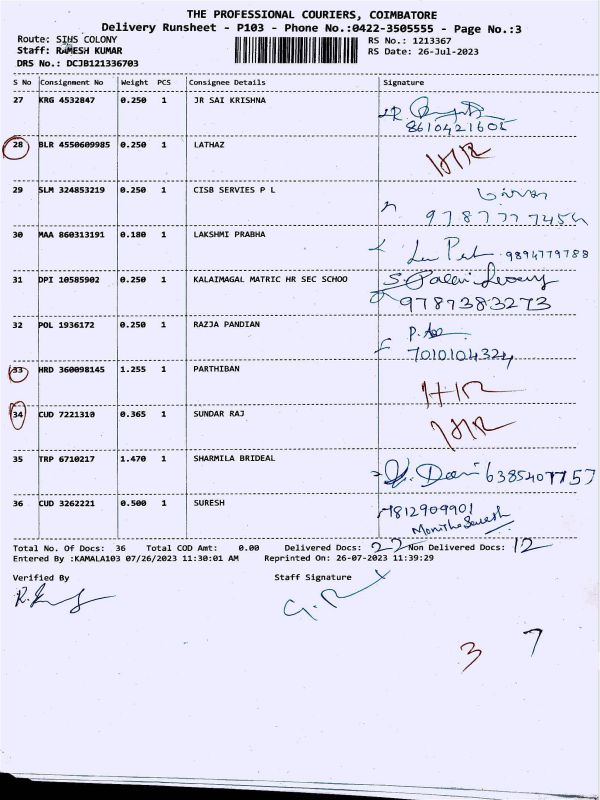 THE PROFESSIONAL COURIERS, COIMBATORE
Delivery Runsheet - P103 - Phone No.:0422-3505555 - Page No.:3
Route: SIHS COLONY RS No.: 1213367
Staff: RAMESH KUMAR RS Date: 26-Jul-2023
DRS No.: DCJB121336703
S No Consignment No Weight PCS Consignee Details Signature
27 KRG 4532847 0.250 1 JR SAI KRISHNA
8610421605
28 BLR 4550609985 0.250 1 LATHAZ HR
29 SLM 324853219 0.250 1 CISB SERVIES P L
9787777454
30 MAA 860313191 0.180 1 LAKSHMI PRABHA
9894779788
31 DPI 10585902 0.250 1 KALAIMAGAL MATRIC HR SEC SCHOO
9789383273
32 POL 1936172 0.250 1 RAZJA PANDIAN
7010104324
33 HRD 360098145 1.255 1 PARTHIBAN HR
34 CUD 7221310 0.365 1 SUNDAR RAJ HR
35 TRP 6710217 1.470 1 SHARMILA BRIDEAL 6385407757
36 CUD 3262221 0.500 1 SURESH 9812909901
Monisha Suresh
Total No. Of Docs: 36 Total COD Amt: 0.00 Delivered Docs: 22 Non Delivered Docs: 12
Entered By :KAMALA103 07/26/2023 11:30:01 AM Reprinted On: 26-07-2023 11:39:29
Verified By Staff Signature
3 7